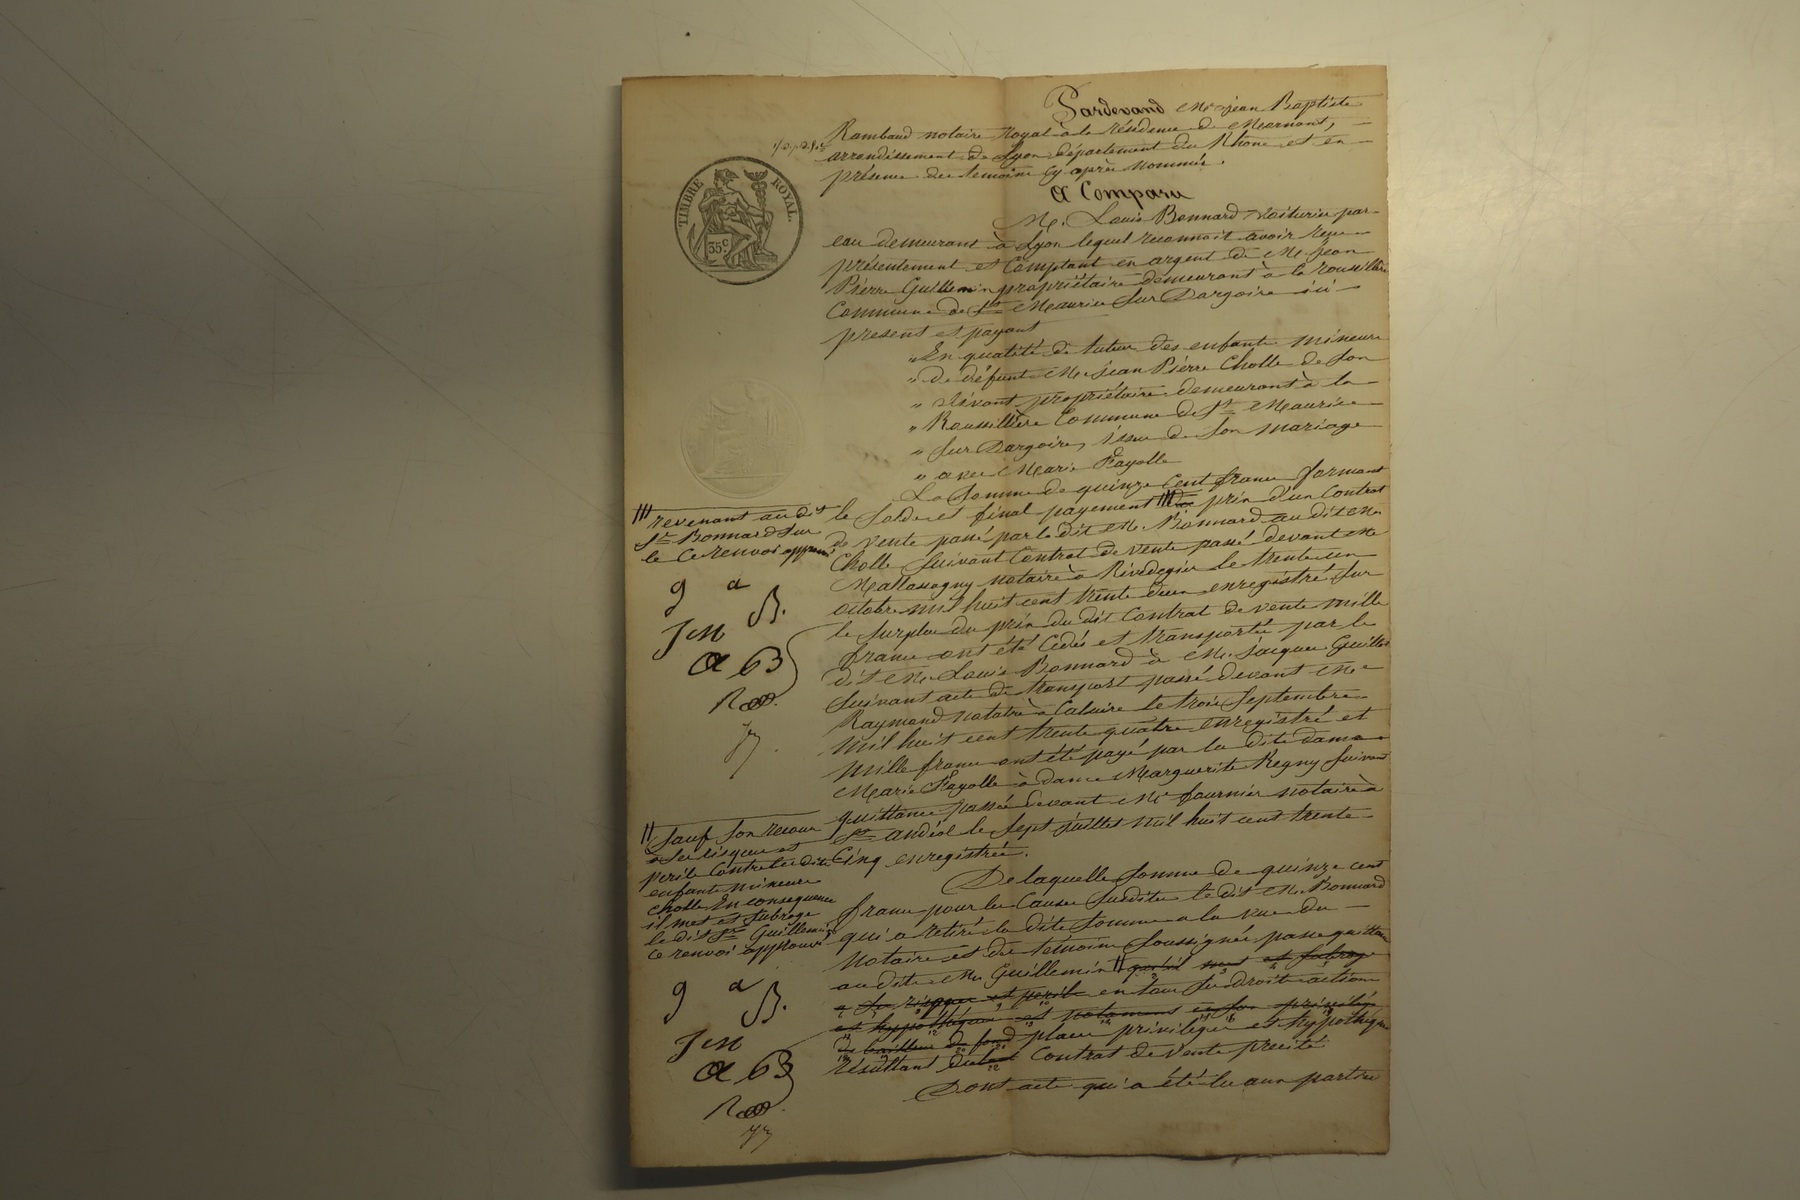 Pardevand Me jean Baptiste
Rambaud notaire Royal à la résidence de Mornant,
arrondissement de Lyon département du Rhone et en
présence des temoins cy après nommés.
TIMBRE ROYAL.
35c
a Comparu
M. Louis Bonnard voiturier par
eau demeurant à Lyon lequel reconnoit avoir reçu
présentement et Comptant en argent de M. Jean
Pierre Guillemin propriétaire demeurant à la roussillière
Commune de St Maurice sur Dargoire ici
present et payant
" En qualité de tuteur des enfants mineurs
" de défunt M. jean Pierre Cholle de son
" vivant propriétaire demeurant à la
" Roussillière Commune de St Maurice
" sur Dargoire, issus de son mariage
" avec Marie Fayolle
La Somme de quinze Cent francs formant
le solde et final payement prix d'un Contrat
de vente passé par le dit M. Bonnard au dit M.
Cholle suivant Contrat de vente passé devant Me
notaire à Rivedegier le trente un
octobre mil huit cent trente deux enregistré sur
le surplus du prix du dit Contrat de vente mille
francs ont été Cédés et transportés par le
dit M. Louis Bonnard à M. Jacques
suivant acte de transport passé devant Me
Raymond notaire à Caluire le trois Septembre
mil huit cent trente quatre enregistré et
mille francs ont été payé par la dite dame
Marie Fayolle à dame Marguerite Regny suivant
quittance passée devant Me fournier notaire à
St andéol le sept juillet mil huit cent trente
Cinq enregistrée.
De laquelle somme de quinze cent
francs pour les Causes susdites le dit M. Bonnard
qui a retiré la dite somme a la vue du
Notaire et des témoins soussignés passe quittance
au dit M. Guillemin || qu'il met et subroge
a ses risques et perils en tous ses droits actions
et hypothèques et notament en son privilège
de bailleur de fond place privilèges et hypothèques
résultant du Contrat de vente précité
Dont acte qui a été lu aux parties
||| revenant au dit
Sr Bonnard sur
le Ce renvoi approuvé
g a
B.
JM
a B
R
|| sauf son recour
à ses risques et
perils Contre les dits
enfants mineurs
Cholle En conséquence
il met et subroge
le dit Sr Guillemin
Ce renvoi approuvé
g a
B.
JM
a B
R